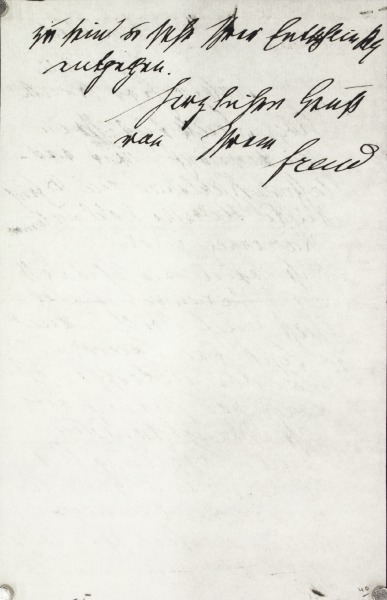 zu sein u sehe Ihrer Entschließg
entgegen.
Herzlichen Gruß
von Ihrem
Freud